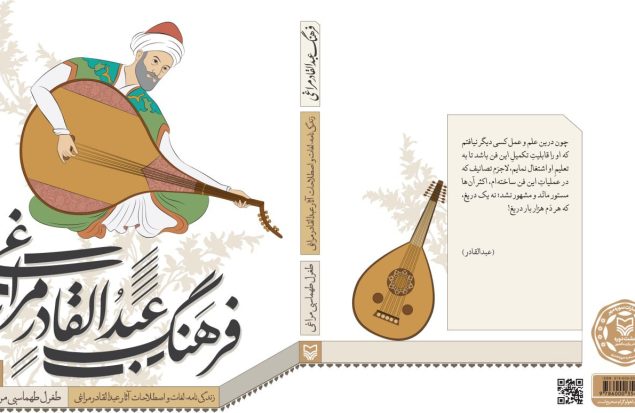 فرهنگ عبدالقادر مراغی
زندگی‌نامه، لغات و اصطلاحات آثار عبدالقادر مراغی
طغرل طهماسبی
فرهنگ عبدالقادر مراغی
زندگی‌نامه، لغات و اصطلاحات آثار عبدالقادر مراغی
طغرل طهماسبی مراغی
چون درین علم و عمل کسی دیگر نیافتم
که او را قابلیتِ تکمیلِ این فن باشد تا به
تعلیم او اشتغال نمایم، لاجرم تصانیف که
در عملیاتِ این فن ساخته‌ام، اکثر آن‌ها
مستور مانَد و مشهور نشد؛ نه یک دریغ،
که هر دَم هزار بار دریغ!
(عبدالقادر)